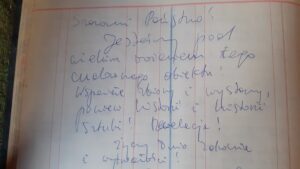 Szanowni Państwo!
Jestem pod
wielkim wrażeniem tego
cudownego obiektu.
Wspaniałe zbiory i wystawy,
powiew historii i historii
sztuki! Rewelacja!
Życzę Dużo Zdrowia
i wytrwałości!